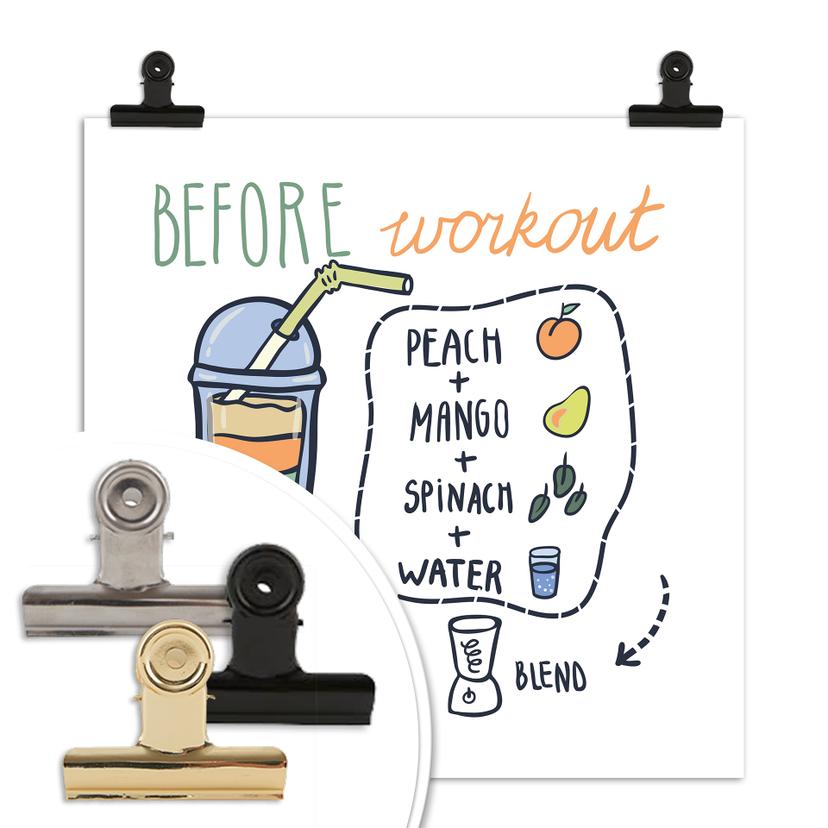 BEFORE workout
PEACH
+
MANGO
+
SPiNACH
+
WATER
BLEND